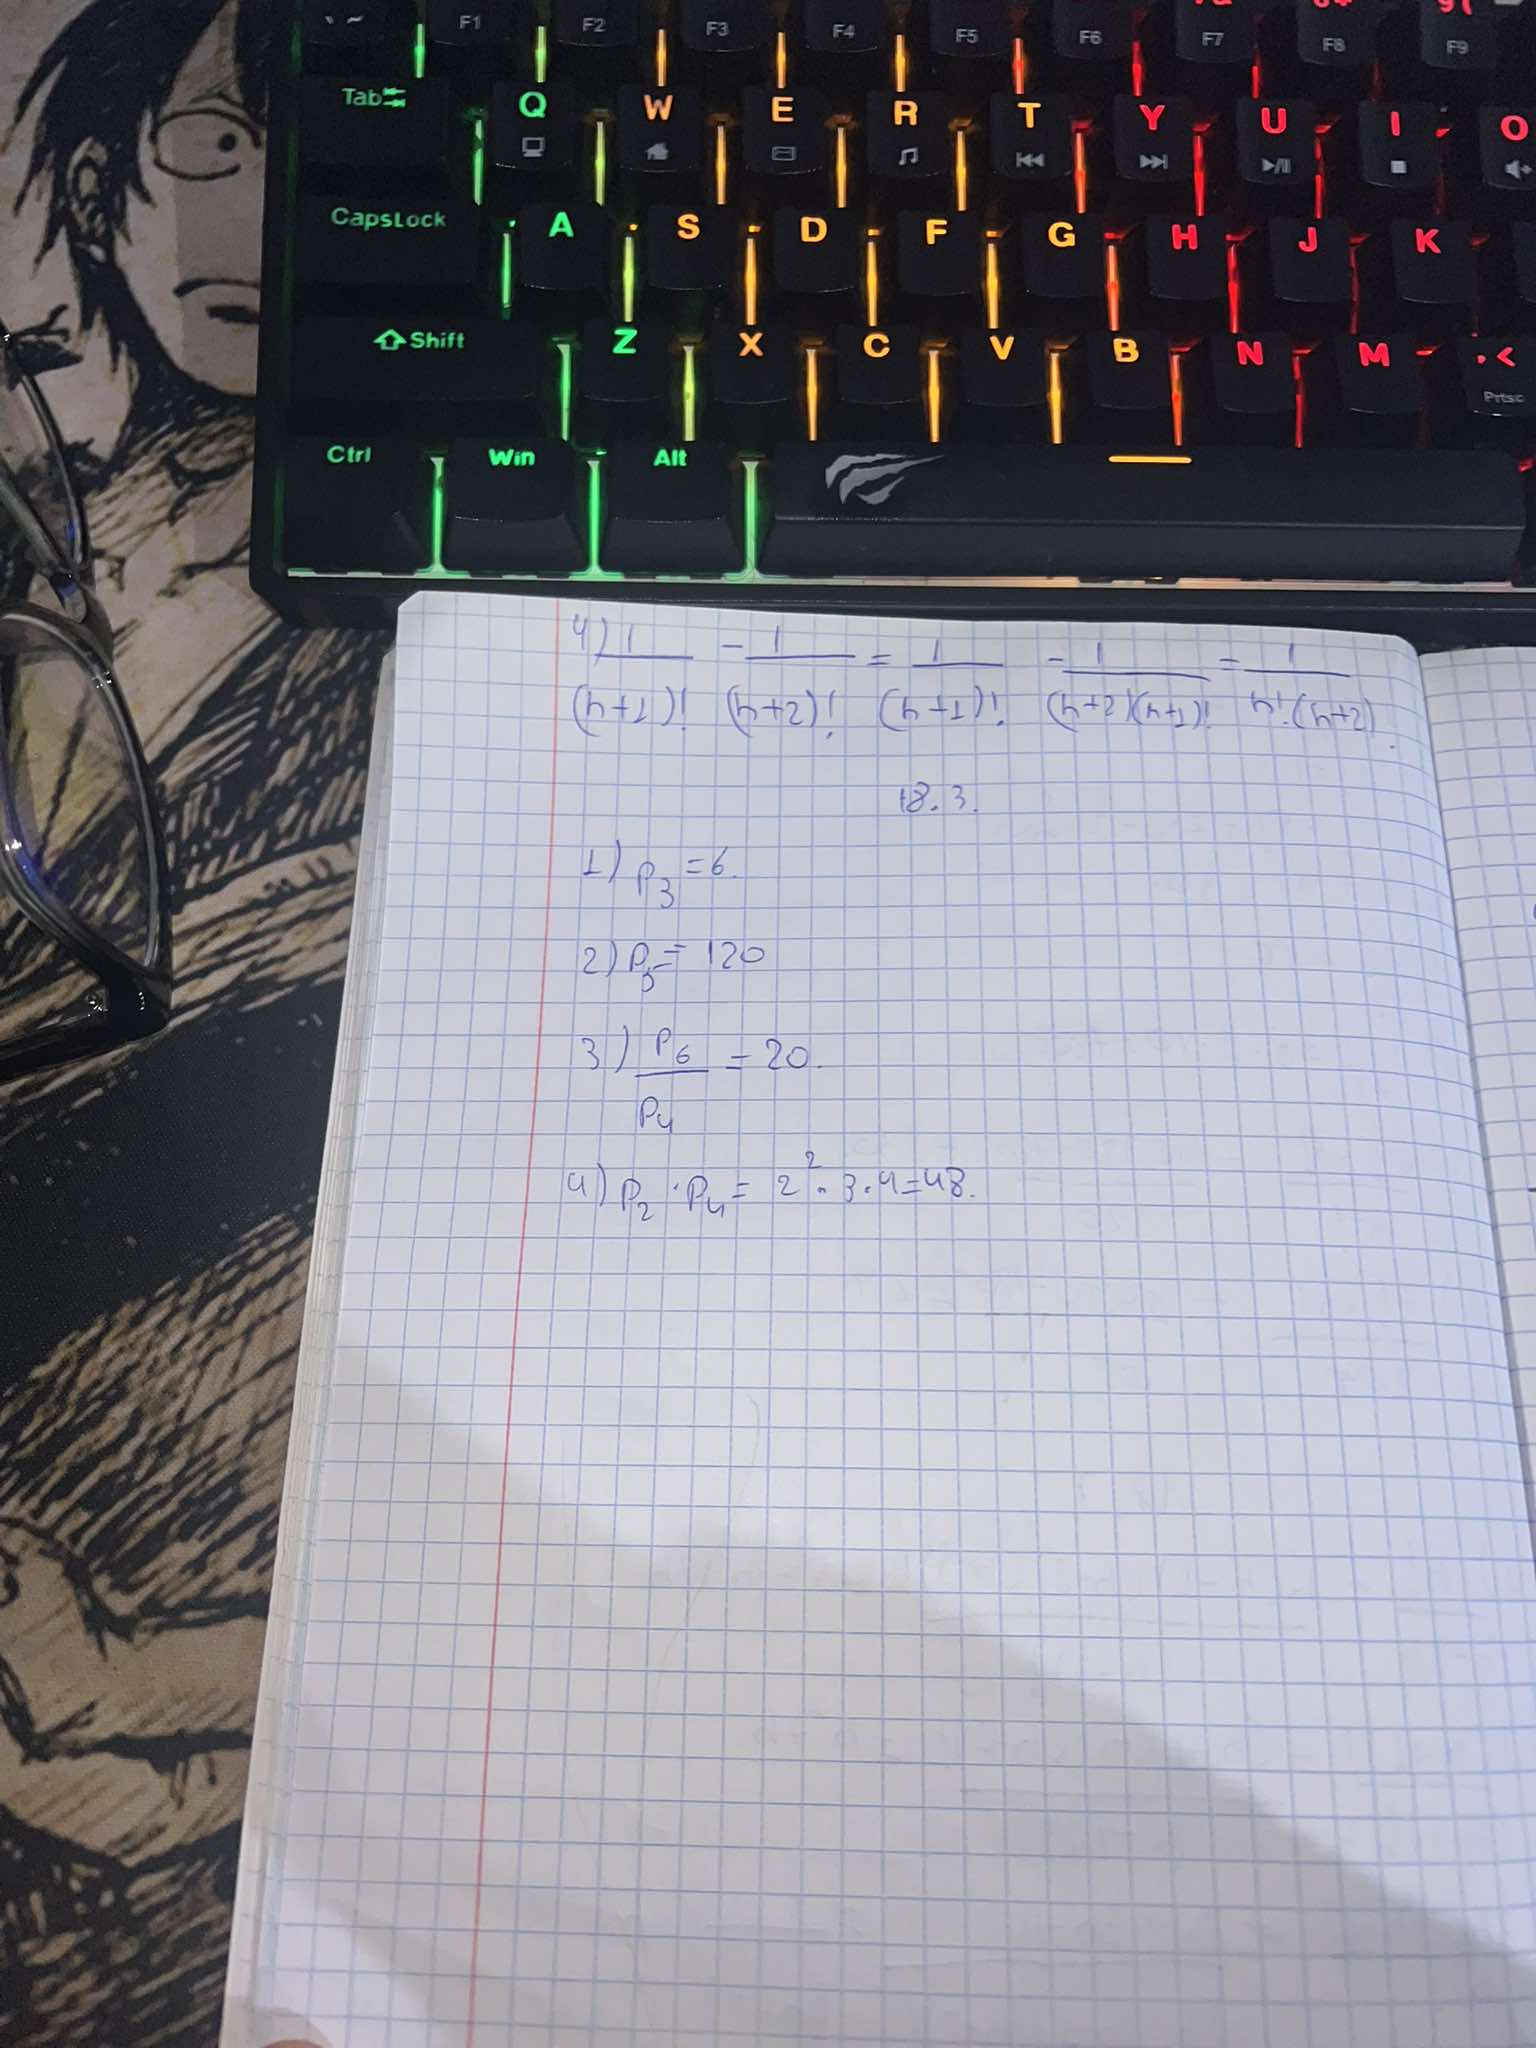 F1 F2 F3 F4 F5 F6 F7 F8 F9
Tab Q W E R T Y U I O
CapsLock A S D F G H J K
Shift Z X C V B N M . <
Prtsc
Ctrl Win Alt
4) 1/(n+1)! - 1/(n+2)! = 1/(n+1)! - 1/(n+2)(n+1)! = 1/n!(n+2).
18.3.
1) P3 = 6.
2) P5 = 120
3) P6/P4 = 20.
4) P2 · P4 = 2² · 3 · 4 = 48.